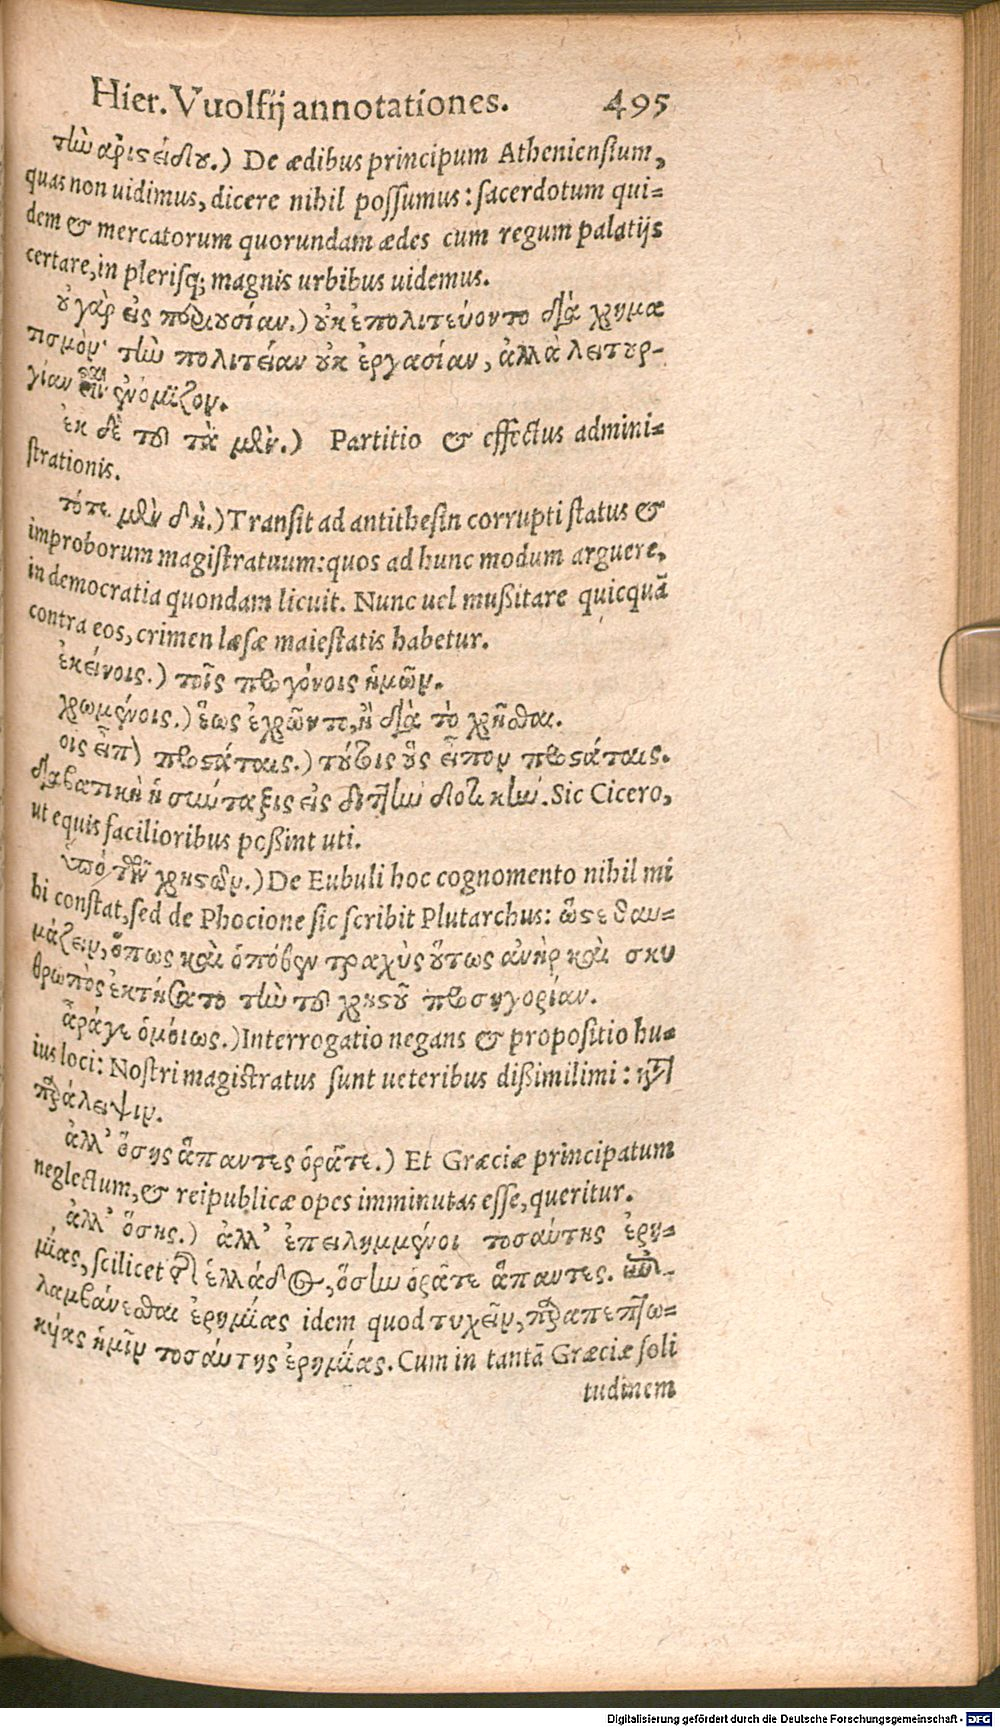 Hier. Vuolfij annotationes. 495
τὼ ἀριςείδου.) De ædibus principum Atheniensium,
quas non uidimus, dicere nihil possumus: sacerdotum qui=
dem & mercatorum quorundam ædes cum regum palatijs
certare, in plerisq; magnis urbibus uidemus.
οὐ γὰρ εἰς περιουσίαν.) οὐκ ἐπολιτεύοντο διὰ χρημα
τισμὸν· τὼ πολιτείαν οὐκ ἐργασίαν, ἀλλὰ λειτουρ-
γίαν ἐνόμιζον.
ἐκ δὲ τοῦ τὰ μὲν.) Partitio & effectus admini=
strationis.
τότε μὲν δὴ.) Transit ad antithesin corrupti status &
improborum magistratuum: quos ad hunc modum arguere,
in democratia quondam licuit. Nunc uel mußitare quicquã
contra eos, crimen læsæ maiestatis habetur.
ἐκείνοις.) τοῖς προγόνοις ἡμῶν.
χρωμένοις.) ἕως ἐχρῶντο, ἢ διὰ τὸ χρῆσθαι.
οἷς εἶπ) προςάταις.) τούτοις οὓς εἶπον προςάταις.
διαβατικὴ ἡ σύνταξις εἰς Sic Cicero,
ut equis facilioribus poßint uti.
ὑπὸ τῶν χρηςῶν.) De Eubuli hoc cognomento nihil mi
hi constat, sed de Phocione sic scribit Plutarchus: ὥςε θαυ=
μάζειν, ὅπως καὶ ὁπόθεν τραχὺς οὕτως ἀνὴρ καὶ σκυ
θρωπὸς ἐκτήσατο τὼ τοῦ χρηςοῦ προσηγορίαν.
ἆρά γε ὁμοίως.) Interrogatio negans & propositio hu=
ius loci: Nostri magistratus sunt ueteribus dißimilimi: κατὰ
παράλειψιν.
ἀλλ’ ὅσης ἅπαντες ὁρᾶτε.) Et Græciæ principatum
neglectum, & reipublicæ opes imminutas esse, queritur.
ἀλλ’ ὅσης.) ἀλλ’ ἐπειλημμένοι τοσαύτης ἐρη=
μίας, scilicet τῆς ἑλλάδος, ὅσιω ὁρᾶτε ἅπαντες. ἐπι-
λαμβάνεσθαι ἐρημίας idem quod τυχεῖν, παραπεπτω=
κυίας ἡμῖν τοσαύτης ἐρημίας. Cum in tantã Græciæ soli
tudinem
Digitalisierung gefördert durch die Deutsche Forschungsgemeinschaft - DFG